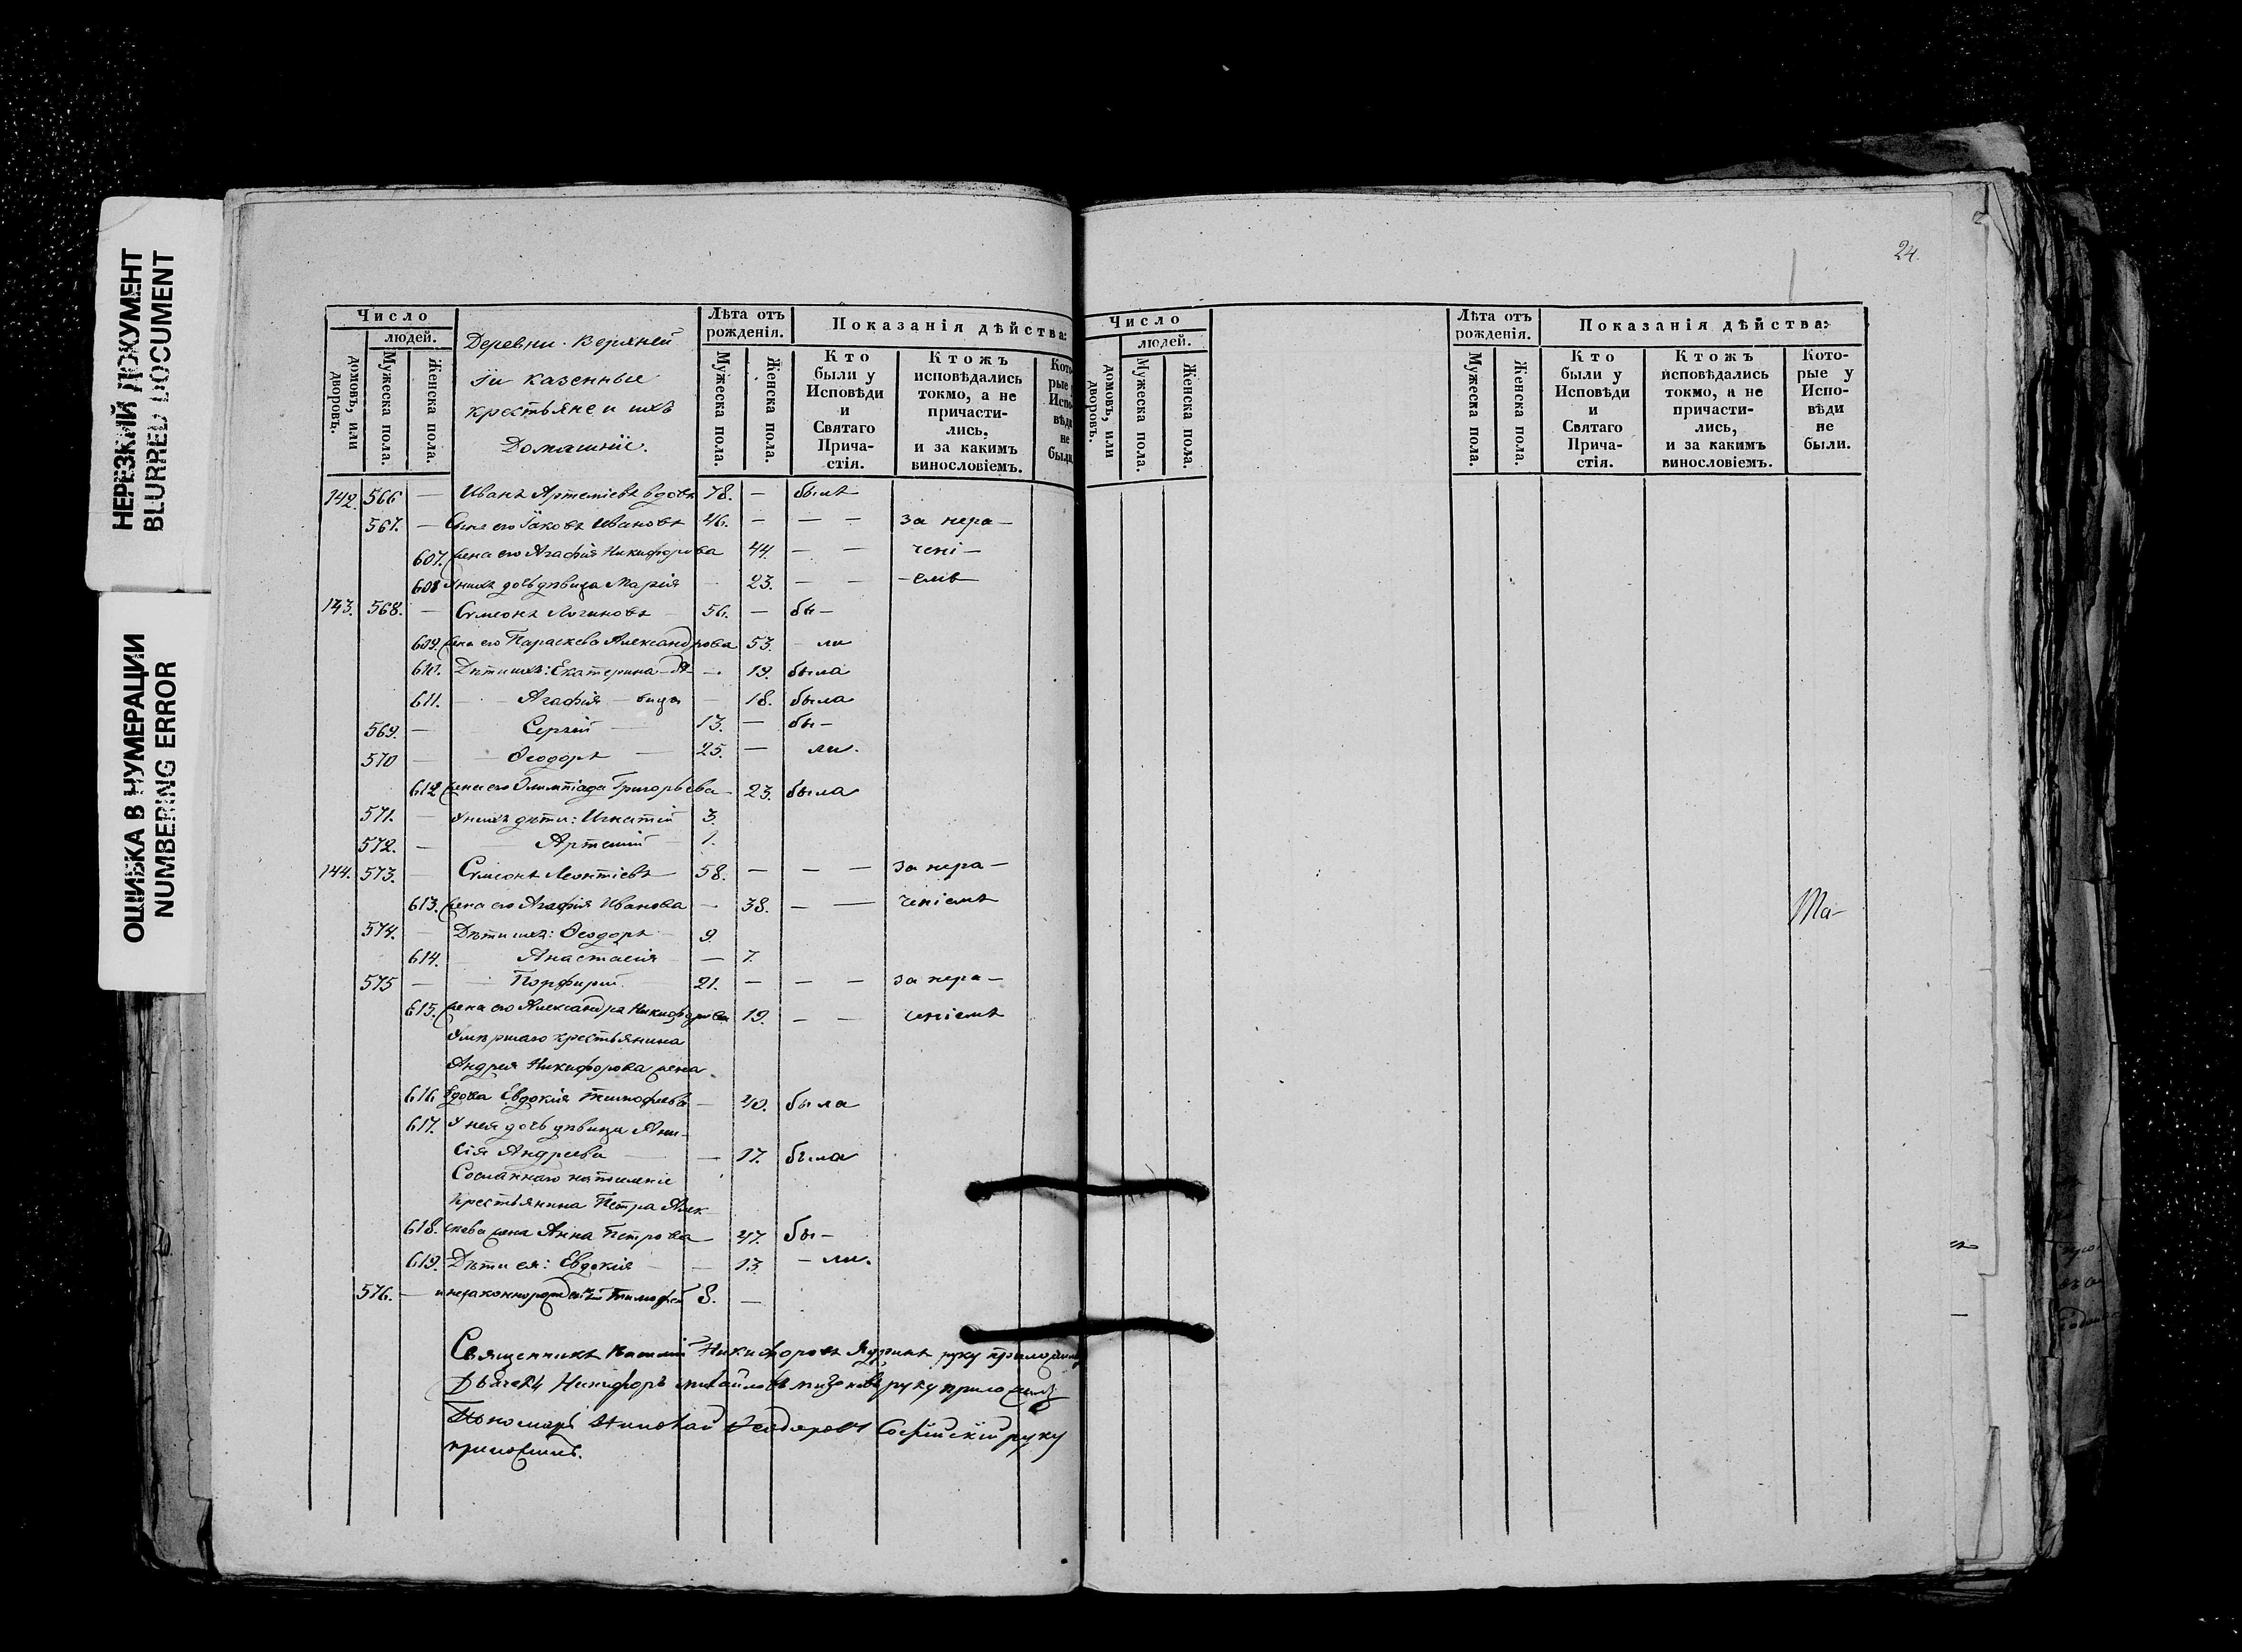 НЕРЕЗКИЙ ДОКУМЕНТ
BLURRED DOCUMENT
ОШИБКА В НУМЕРАЦИИ
NUMBERING ERROR
24.
Число
людей.
домовъ, или дворовъ.
Мужеска пола.
Женска пола.
Деревни Верхней
казенные
крестьяне и ихъ
Домашніе.
Лѣта отъ рожденія.
Мужеска пола.
Женска пола.
Показанія дѣйства:
Кто были у Исповѣди и Святаго Причастія.
Ктожъ исповѣдались токмо, а не причастились, и за какимъ винословіемъ.
142. 566 — Иванъ Артеміевъ вдовъ 78. — былъ
567. — Сынъ его Іаковъ Ивановъ 46. — — — за нера-
607. жена его Агафія Никифорова 44. — — чені-
608 У нихъ дочь дѣвица Марія — 23. — — -емъ
143. 568. — Сѵмеонъ Логиновъ 56. — бы-
609. жена его Параскева Александрова 53. — ли
610. Дѣти ихъ: Екатерина дѣ- — 19. была
611. — Агафія — вицы — 18. была
569. — Сергій — 13. — бы-
570 — Ѳеодоръ — 25. — ли.
612 жена его Олимпіада Григорьева — 23. была
571. — У нихъ дѣти: Игнатій 3.
572. — Артемій — 1.
144. 573. — Сѵмеонъ Леонтіевъ 58. — — — за нера-
613. жена его Агафія Иванова — 38. — — ченіемъ
574. — Дѣти ихъ: Ѳеодоръ — 9.
614. Анастасія — 7.
575 — Порфирій 21. — — — за нера-
615. жена его Александра Никифорова 19. — — ченіемъ
Умершаго крестьянина
Андрея Никифорова жена
616 вдова Евдокія Тимофеева — 40. была
617. У нея дочь дѣвица Ани-
сія Андреева — 17. была
Сосланнаго на поселеніе
крестьянина Петра Алек-
618. сѣева жена Анна Петрова — 47. бы-
619. Дѣти ея: Евдокія — — 13. — ли.
576. — и незаконнорожденный Тимофей 8. —
Священникъ Василій Никифоровъ руку приложилъ
Дьячекъ Никифоръ Михайловъ руку приложилъ
Пономарь Николай Ѳеодоровъ Софійскій руку
приложилъ.
Число
людей.
домовъ, или дворовъ.
Мужеска пола.
Женска пола.
Лѣта отъ рожденія.
Мужеска пола.
Женска пола.
Показанія дѣйства:
Кто были у Исповѣди и Святаго Причастія.
Ктожъ исповѣдались токмо, а не причастились, и за какимъ винословіемъ.
Которые у Исповѣди не были.
Ма-